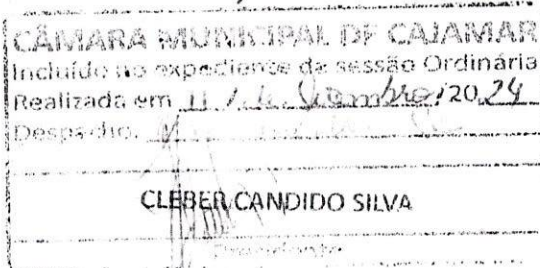 CÂMARA MUNICIPAL DE CAJAMAR
Incluído no expediente da sessão Ordinária
Realizada em 11 / /2024
Despacho.
CLEBER CANDIDO SILVA
Presidente